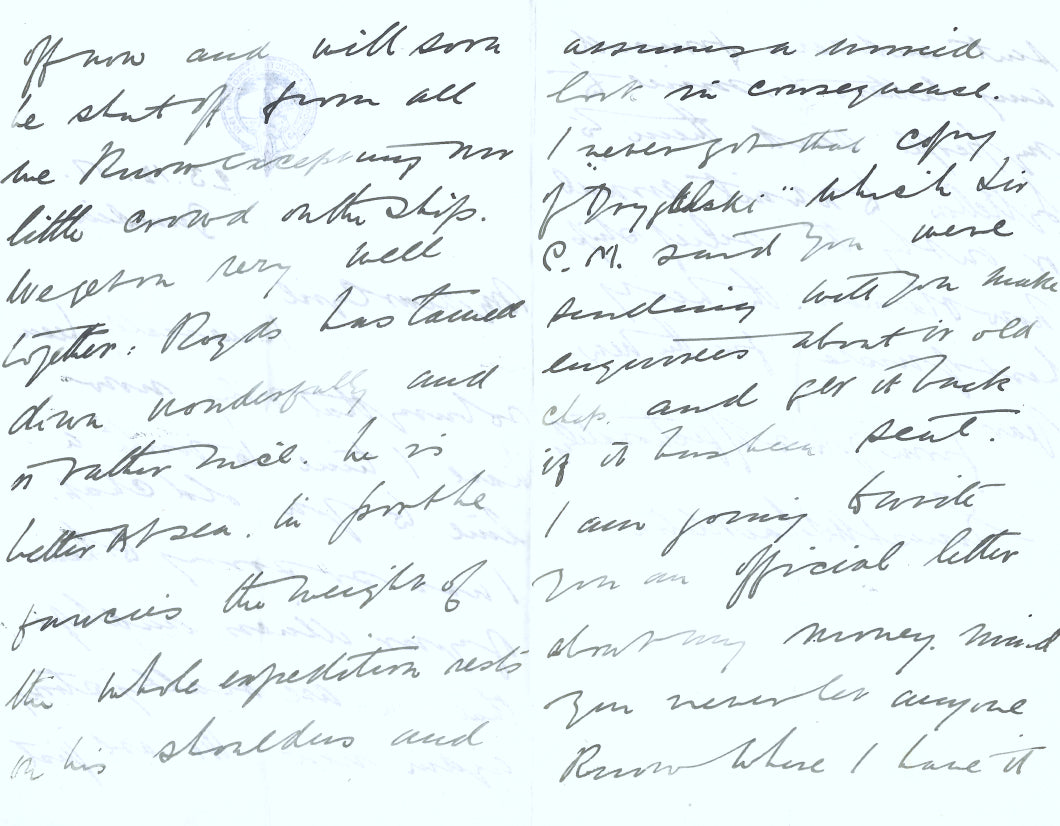 off now and will soon
be shut off from all
we know excepting our
little crowd on the ship.
We get on very well
together: Royds has tamed
down wonderfully and
is rather nice. he is
better At sea. In port he
fancies the weight of
the whole expedition rests
on his shoulders and
assumes a worried
look in consequence.
I never got that copy
of "Drygalski" which Sir
C. M. said you were
sending will you make
enquiries about it old
chap. and get it back
if it has been sent.
I am going to write
you an official letter
about my money. mind
you never let anyone
Know where I have it